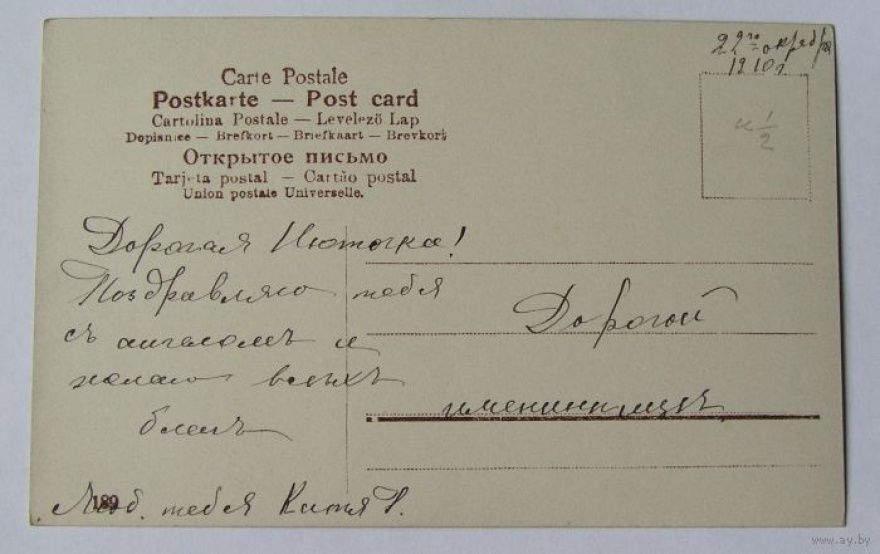 22го октября
1910 г
Carte Postale
Postkarte — Post card
Cartolina Postale — Levelező Lap
Dopisnice — Brefkort — Briefkaart — Brevkort
Открытое письмо
Tarjeta postal — Cartão postal
Union postale Universelle.
к 1/2
Дорогая Нюточка!
Поздравляю тебя
съ ангеломъ и
желаю всѣхъ
благъ
Люб. тебя Катя
189
Дорогой
имениницѣ
www.ay.by